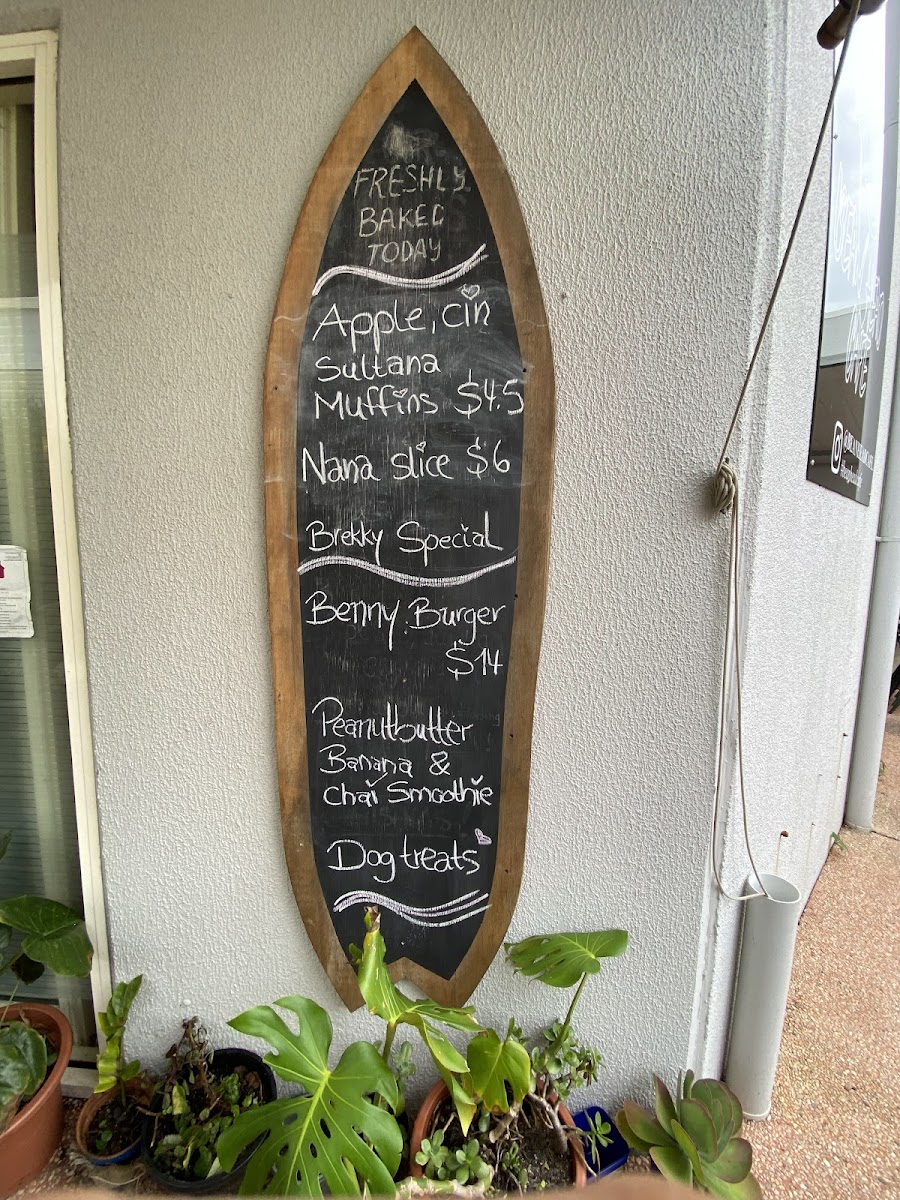 FRESHLY
BAKED
TODAY
Apple, cin
Sultana
Muffins $4.5
Nana slice $6
Brekky Special
Benny Burger
$14
Peanutbutter
Banana &
Chai Smoothie
Dog treats